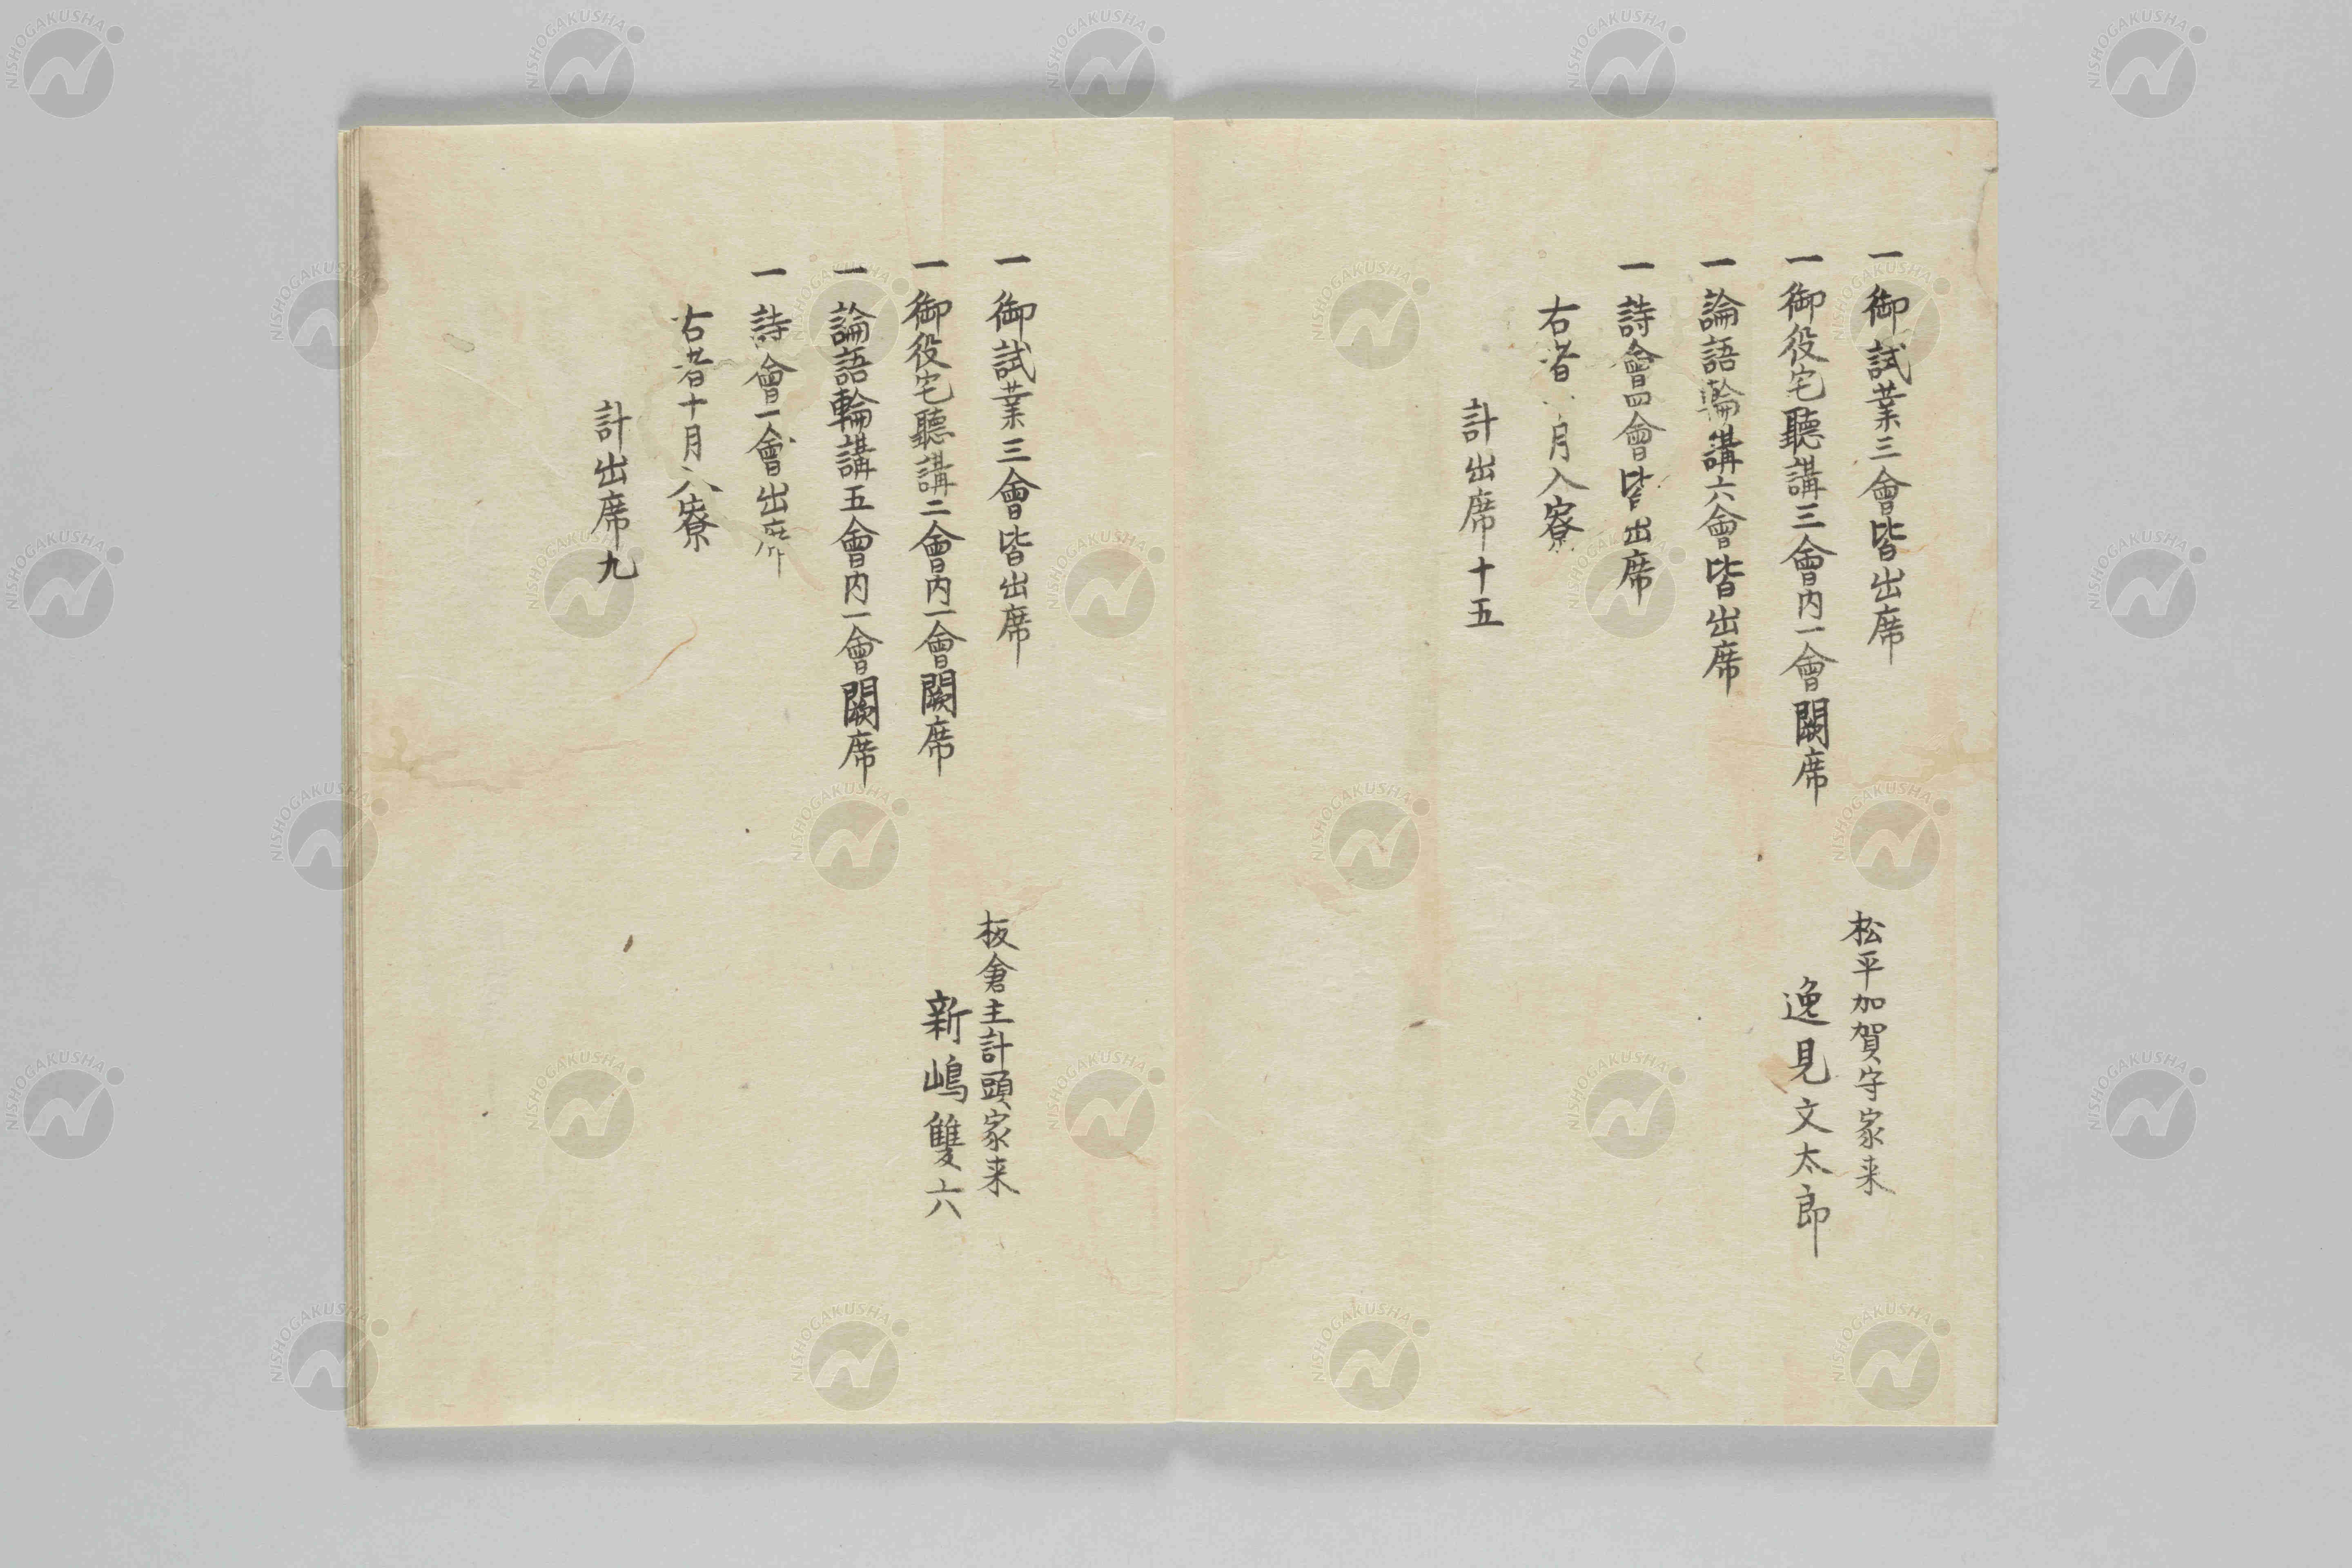 一御試業三會皆出席
一御役宅聽講三會内一會闕席
一論語輪講六會皆出席
一詩會四會皆出席
右者 月入寮
計出席十五
松平加賀守家来
逸見文太郎
一御試業三會皆出席
一御役宅聽講二會内一會闕席
一論語輪講五會内一會闕席
一詩會一會出席
右者十月入寮
計出席九
板倉主計頭家来
新嶋雙六
NISHOGAKUSHA